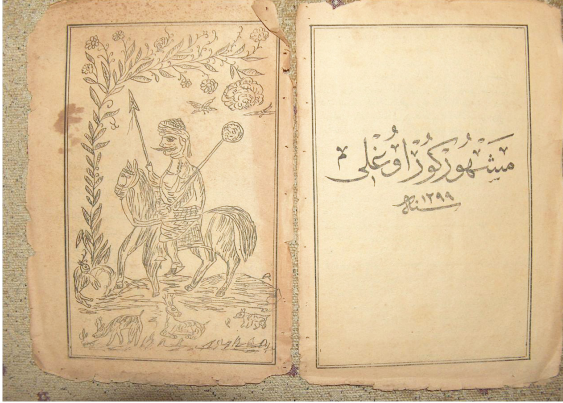 مَشْهُورْ كُورْ اُوغْلِى
سنه ١٢٩٩